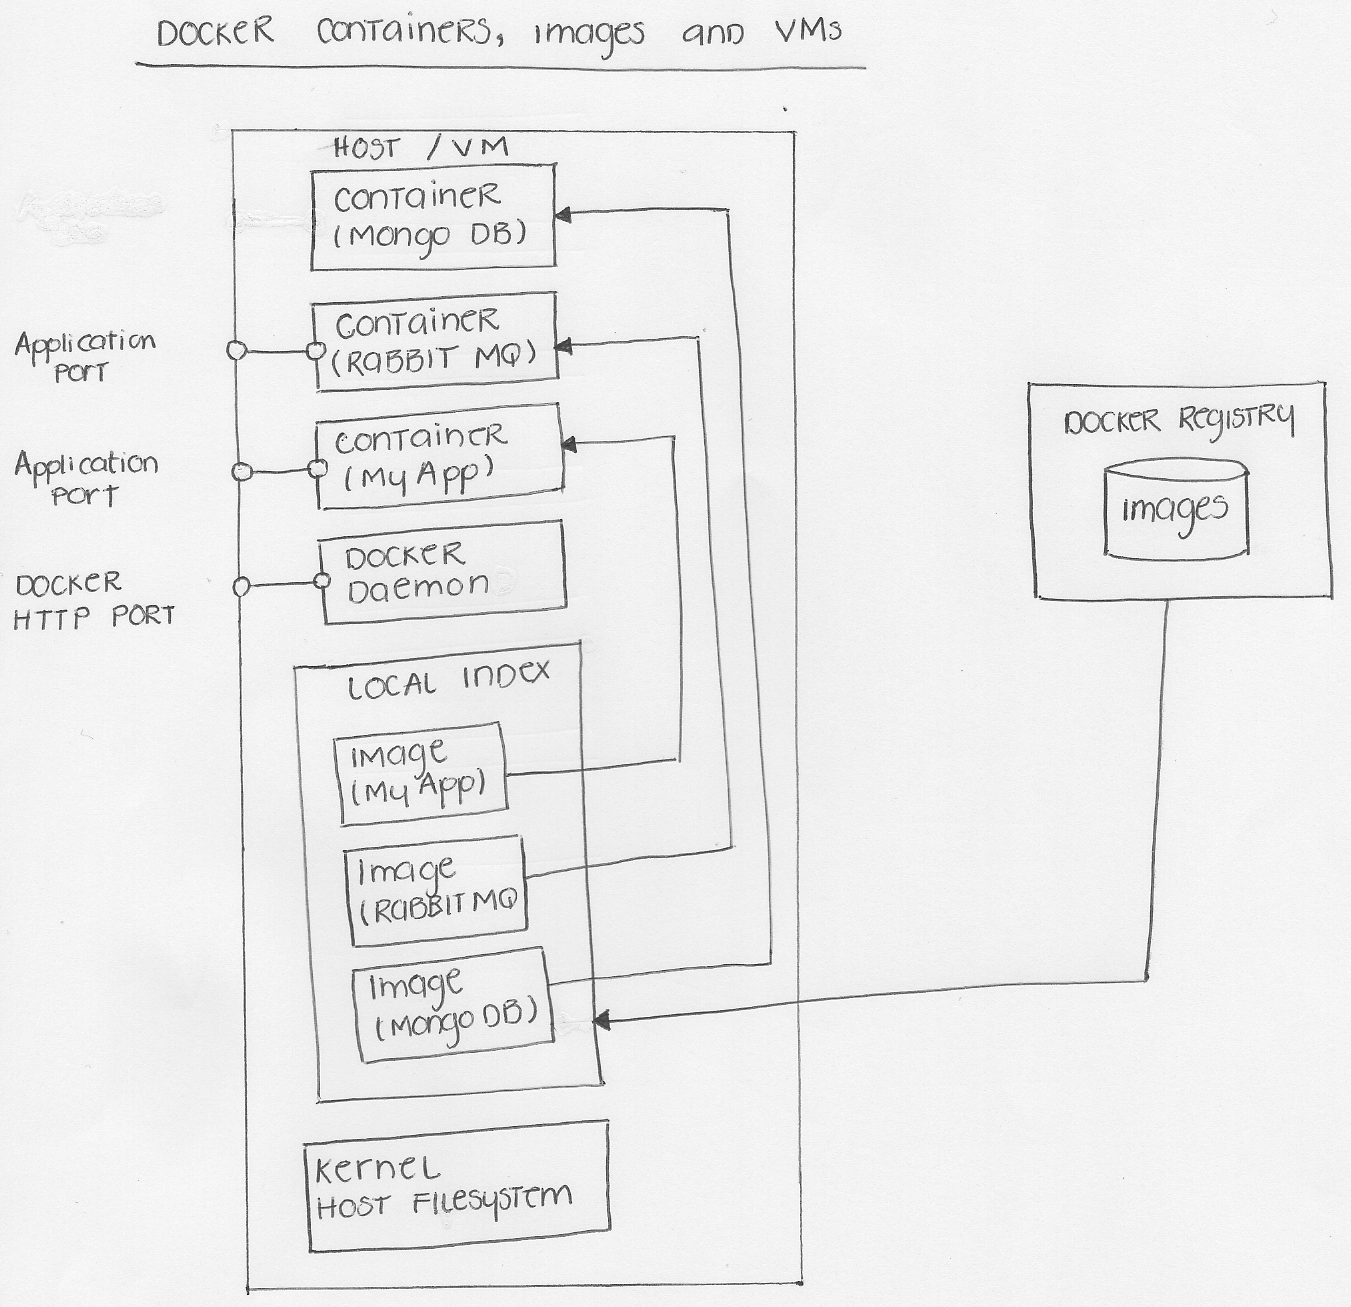 DOCKER CONTAINERS, IMAGES AND VMs
HOST / VM
CONTAINER
(Mongo DB)
Application
PORT
CONTAINER
(RABBIT MQ)
Application
PORT
CONTAINER
(My App)
DOCKER
HTTP PORT
DOCKER
Daemon
LOCAL INDEX
IMAGE
(My App)
Image
(RABBIT MQ
Image
(Mongo DB)
Kernel
HOST FILESYSTEM
DOCKER REGISTRY
images